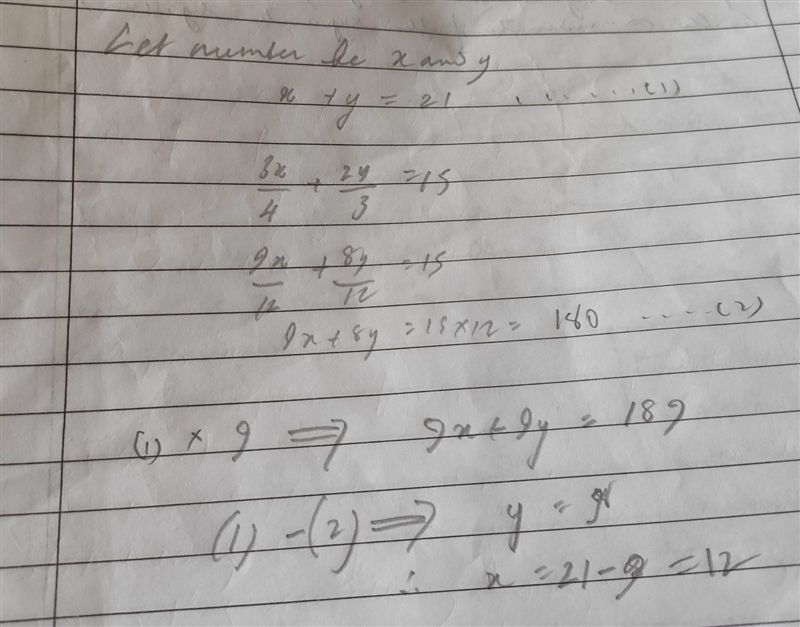 Let number be x and y
x + y = 21 .......(1)
3x/4 + 2y/3 = 15
9x/12 + 8y/12 = 15
9x + 8y = 15 × 12 = 180 .....(2)
(1) × 9 ⟹ 9x + 9y = 189
(1) - (2) ⟹ y = 9
∴ x = 21 - 9 = 12